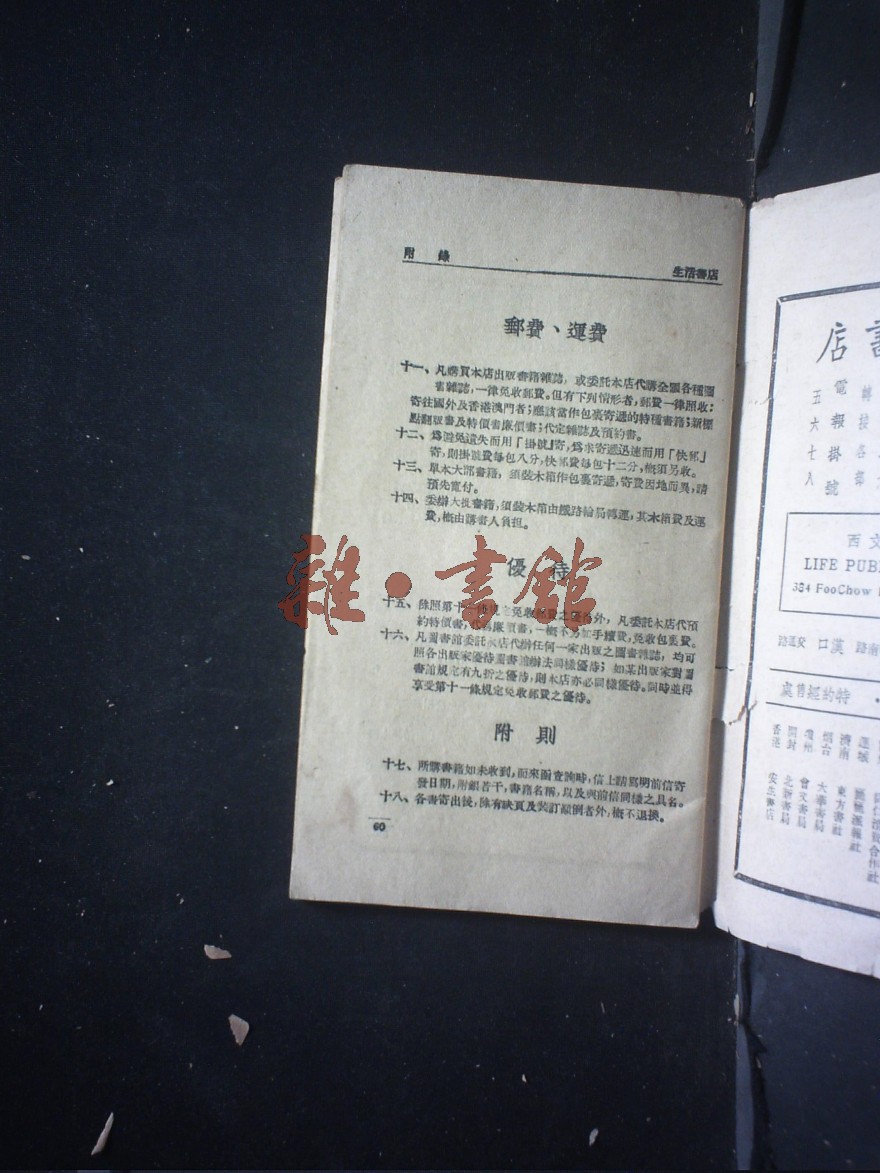 附 錄
生活書店
郵費、運費
十一、凡購買本店出版書籍雜誌，或委託本店代購全國各種圖
書雜誌，一律免收郵費。但有下列情形者，郵費一律照收：
寄往國外及香港澳門者；應該當作包裹寄遞的特種書籍；新標
點翻版書及特價書廉價書；代定雜誌及預約書。
十二、爲避免遺失而用「掛號」寄，爲求寄遞迅速而用「快郵」
寄，則掛號費每包八分，快郵費每包十二分，概須另收。
十三、單本大部書籍，須裝木箱作包裹寄遞，寄費因地而異，請
預先寬付。
十四、委辦大批書籍，須裝木箱由鐵路輪局轉運，其木箱費及運
費，概由購書人負担。
優 待
十五、除照第十一條規定免收郵費之優待外，凡委託本店代預
約特價書，廉價書，一概不另加手續費，免收包裹費。
十六、凡圖書館委託本店代辦任何一家出版之圖書雜誌，均可
照各出版家優待圖書館辦法同樣優待；如某出版家對圖
書館規定有九折之優待，則本店亦必同樣優待。同時並得
享受第十一條規定免收郵費之優待。
附 則
十七、所購書籍如未收到，而來函查詢時，信上請寫明前信寄
發日期，附銀若干，書籍名稱，以及與前信同樣之具名。
十八、各書寄出後，除有缺頁及裝訂顚倒者外，概不退換。
60
雜·書館
書店
電報掛號
五六七八
西文
LIFE PUB
384 FooChow
漢口
特約經售處
濟南 東方書社
烟台 大華書局
瓊州 會文書局
開封 北新書局
香港 安生書店